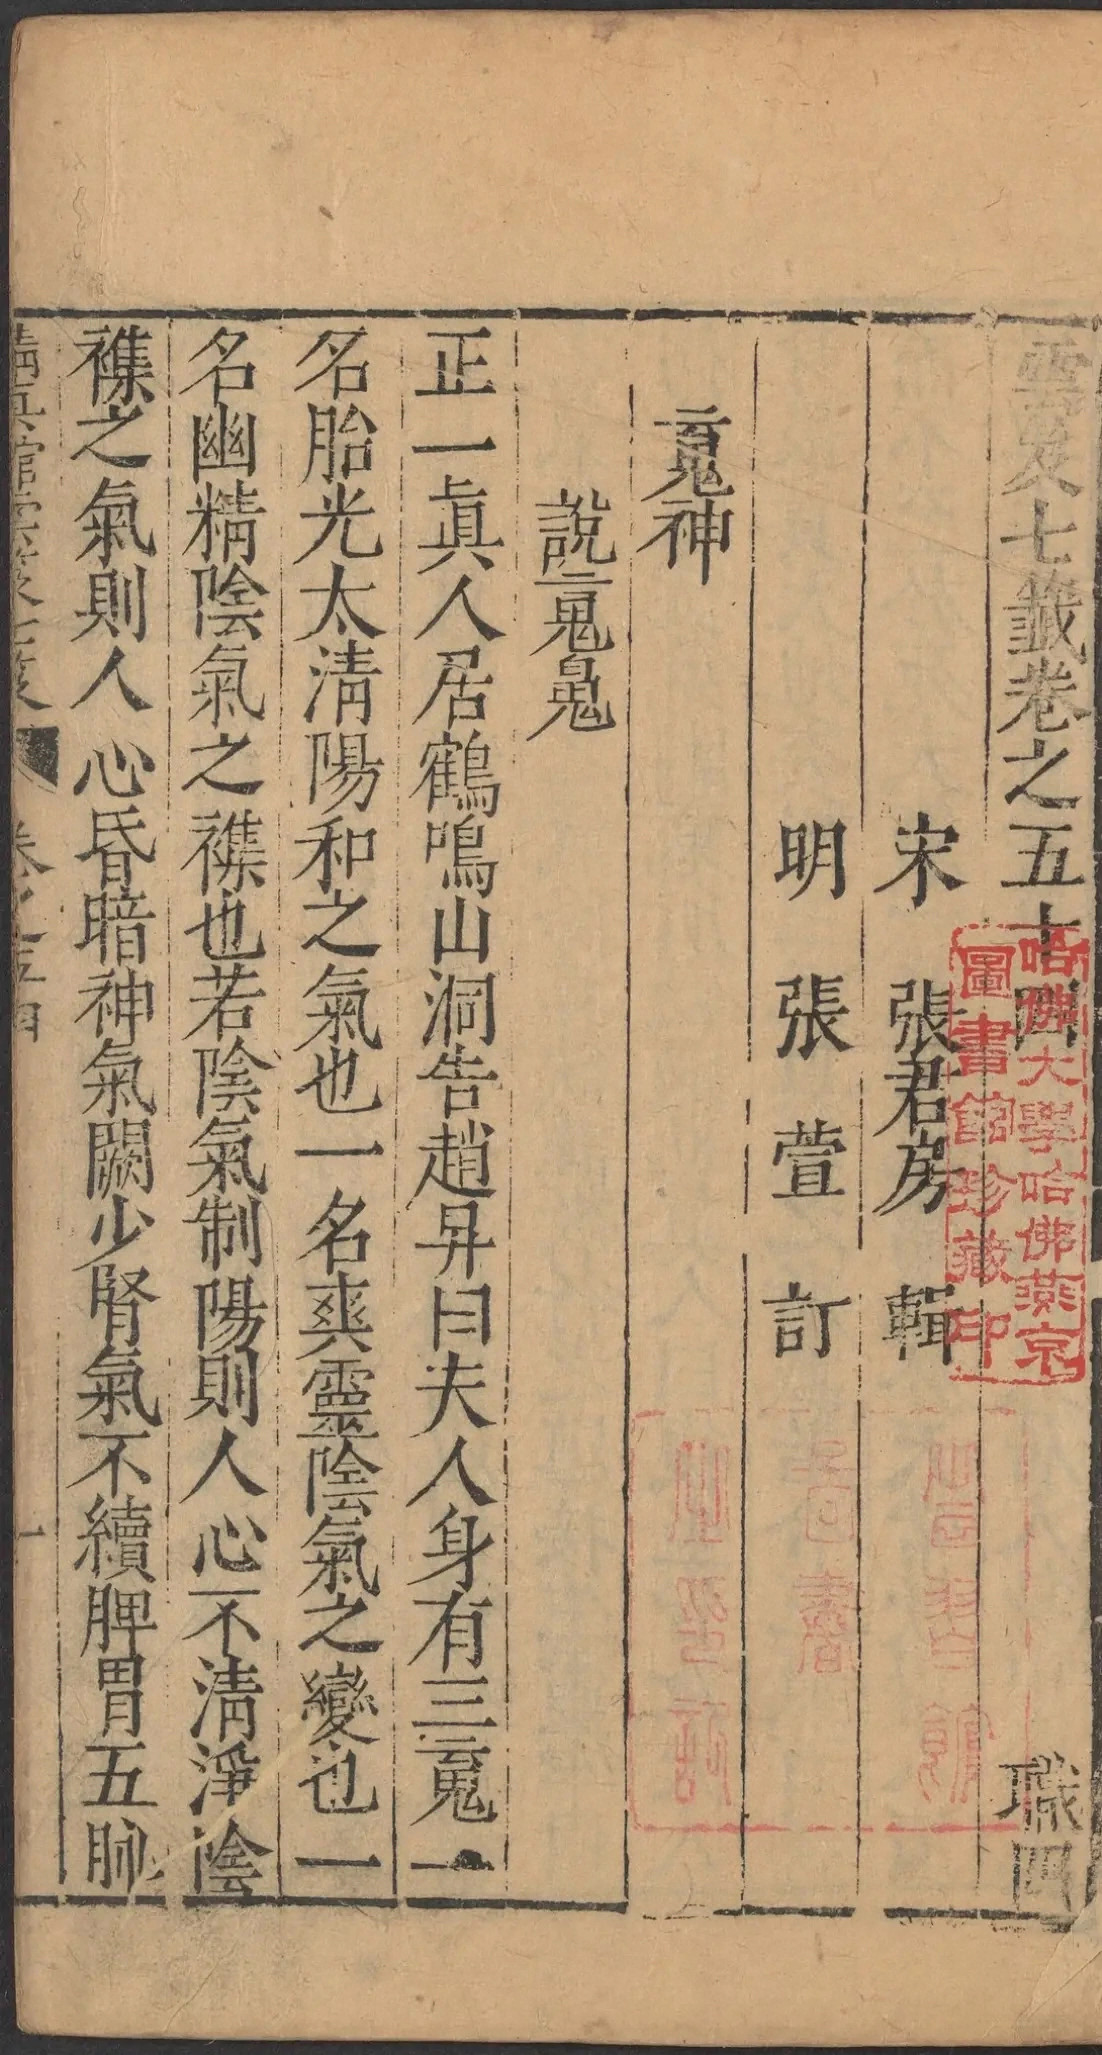 雲笈七籤卷之五十四 職四
宋 張君房 輯
明 張萱 訂
䰟神
說䰟魄
正一眞人居鶴鳴山洞告趙昇曰夫人身有三䰟一
名胎光太淸陽和之氣也一名爽靈陰氣之變也一
名幽精陰氣之襍也若陰氣制陽則人心不淸淨陰
襍之氣則人心昏暗神氣闕少腎氣不續脾胃五脉
卷之五十四 一
哈佛大學哈佛燕京
圖書館珍藏印